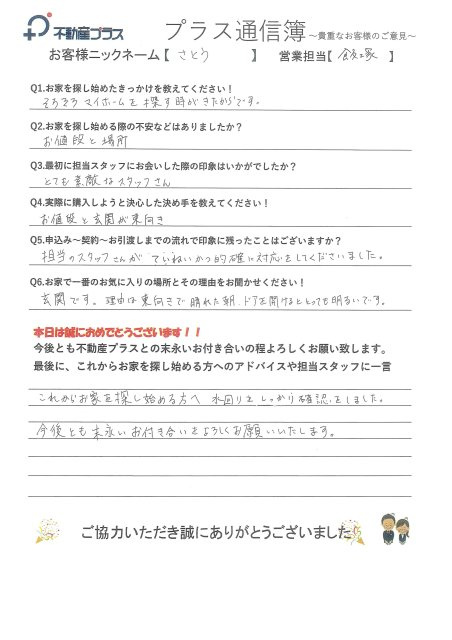 不動産プラス プラス通信簿 ～貴重なお客様のご意見～
お客様ニックネーム【 さとう 】 営業担当【 飯塚 】
Q1.お家を探し始めたきっかけを教えてください！
そろそろ マイホームを 探す時がきたからです。
Q2.お家を探し始める際の不安などはありましたか？
お値段と場所
Q3.最初に担当スタッフにお会いした際の印象はいかがでしたか？
とても素敵なスタッフさん
Q4.実際に購入しようと決心した決め手を教えてください！
お値段と玄関が東向き
Q5.申込み～契約～お引渡しまでの流れで印象に残ったことはございますか？
担当のスタッフさんが ていねいかつ的確に対応をしてくださいました。
Q6.お家で一番のお気に入りの場所とその理由をお聞かせください！
玄関です。理由は東向きで晴れた朝、ドアを開けるととっても明るいです。
本日は誠におめでとうございます！！
今後とも不動産プラスとの末永いお付き合いの程よろしくお願い致します。
最後に、これからお家を探し始める方へのアドバイスや担当スタッフに一言
これからお家を探し始める方へ 水回りを しっかり確認をしました。
今後とも末永いお付き合いをよろしくお願いいたします。
ご協力いただき誠にありがとうございました